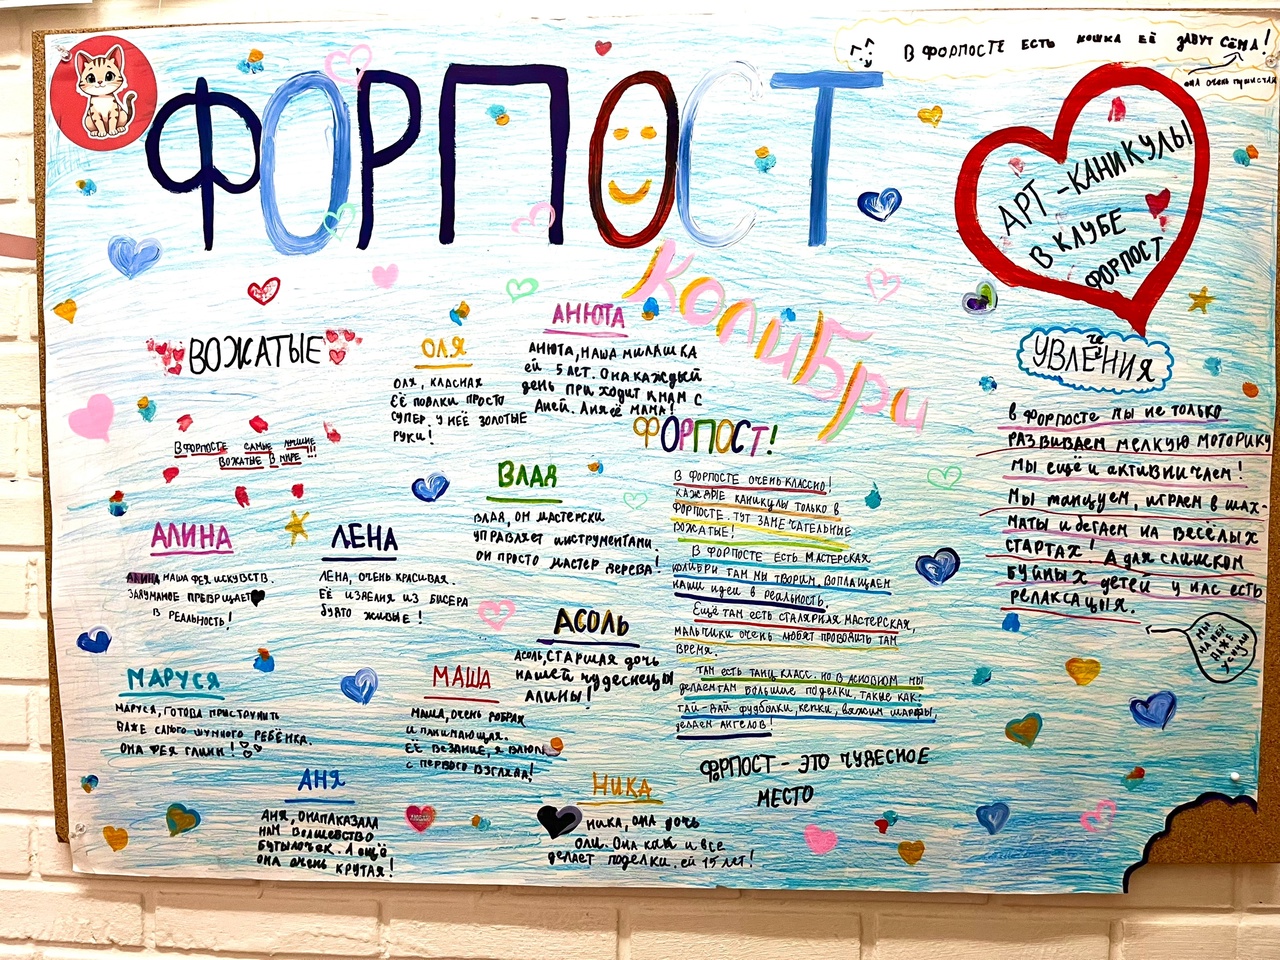 В ФОРПОСТЕ ЕСТЬ КОШКА ЕЁ ЗАВУТ СЁМА!
ОНА ОЧЕНЬ ПУШИСТАЯ
ФОРПОСТ
КОЛИБРИ
АРТ-КАНИКУЛЫ
В КЛУБЕ
ФОРПОСТ
ВОЖАТЫЕ
В ФОРПОСТЕ САМЫЕ ЛУЧШИЕ
ВОЖАТЫЕ В МИРЕ!!!
ОЛЯ
ОЛЯ, КЛАСНАЯ
ЕЁ ПОДЛКИ ПРОСТО
СУПЕР. У НЕЁ ЗОЛОТЫЕ
РУКИ!
АНЮТА
АНЮТА, НАША МИЛАШКА
ЕЙ 5 ЛЕТ. ОНА КАЖДЫЙ
ДЕНЬ ПРИХОДИТ К НАМ С
АНЕЙ. АНЯ ЕЁ МАМА!
АЛИНА
АЛИНА НАША ФЕЯ ИСКУВСТВ.
ЗАДУМАНОЕ ПРЕВРЩАЕТ
В РЕАЛЬНОСТЬ!
ЛЕНА
ЛЕНА, ОЧЕНЬ КРАСИВАЯ.
ЕЁ ИЗДЕЛИЯ ИЗ БИСЕРА
БУДТО ЖИВЫЕ!
ВЛАД
ВЛАД, ОН МАСТЕРСКИ
УПРАВЛЯЕТ ИНСТРУМЕНТАМИ.
ОН ПРОСТО МАСТЕР ДЕРЕВА!
АСОЛЬ
АСОЛЬ, СТАРШАЯ ДОЧЬ
НАШЕЙ ЧУДЕСНЕЦЫ
АЛИНЫ!
МАРУСЯ
МАРУСЯ, ГОТОВА ПРИСТРУНИТЬ
ДАЖЕ САМОГО ШУМНОГО РЕБЁНКА.
ОНА ФЕЯ ГЛИНЫ!
МАША
МАША, ОЧЕНЬ ДОБРАЯ
И ПАНИМАЮЩАЯ.
ЕЁ ВЕЗАНИЕ, Я ВЛЮБ
С ПЕРВОГО ВЗГЛЯДА!
АНЯ
АНЯ, ОНА ПАКАЗАЛА
НАМ ВОЛШЕВСТВО
БУТЫЛОЧЕК. А ЕЩЁ
ОНА ОЧЕНЬ КРУТАЯ!
НИКА
НИКА, ОНА ДОЧЬ
ОЛИ. ОНА КАК И ВСЕ
ДЕЛАЕТ ПОДЕЛКИ. ЕЙ 15 ЛЕТ!
ФОРПОСТ!
В ФОРПОСТЕ ОЧЕНЬ КЛАССНО!
КАЖДЫЕ КАНИКУЛЫ ТОЛЬКО В
ФОРПОСТЕ. ТУТ ЗАМЕЧАТЕЛЬНЫЕ
ВОЖАТЫЕ!
В ФОРПОСТЕ ЕСТЬ МАСТЕРСКАЯ
КОЛИБРИ ТАМ МЫ ТВОРИМ, ВОПЛАЩАЕМ
НАШИ ИДЕИ В РЕАЛЬНОСТЬ.
ЕЩЁ ТАМ ЕСТЬ СТАЛЯРНАЯ МАСТЕРСКАЯ,
МАЛЬЧИКИ ОЧЕНЬ ЛЮБЯТ ПРОВОДИТЬ ТАМ
ВРЕМЯ.
ТАМ ЕСТЬ ТАНЦ КЛАСС. НО В АСНОВНОМ МЫ
ДЕЛАЕМ ТАМ БОЛЬШИЕ ПОДЕЛКИ, ТАКИЕ КАК:
ТАЙ-ДАЙ ФУДБОЛКИ, КЕПКИ, ВЯЖИМ ШАРФЫ,
ДЕЛАЕМ АНГЕЛОВ!
ФОРПОСТ - ЭТО ЧУДЕСНОЕ
МЕСТО
УВЛЕЧЕНИЯ
В ФОРПОСТЕ МЫ НЕ ТОЛЬКО
РАЗВИВАЕМ МЕЛКУЮ МОТОРИКУ
МЫ ЕЩЁ И АКТИВНИЧАЕМ!
МЫ ТАНЦУЕМ, ИГРАЕМ В ШАХ-
МАТЫ И БЕГАЕМ НА ВЕСЁЛЫХ
СТАРТАХ! А ДЛЯ СЛИШКОМ
БУЙНЫХ ДЕТЕЙ У НАС ЕСТЬ
РЕЛАКСАЦЫЯ.
МЫ
НА НЕЙ
ДАЖЕ
УСНУЛИ